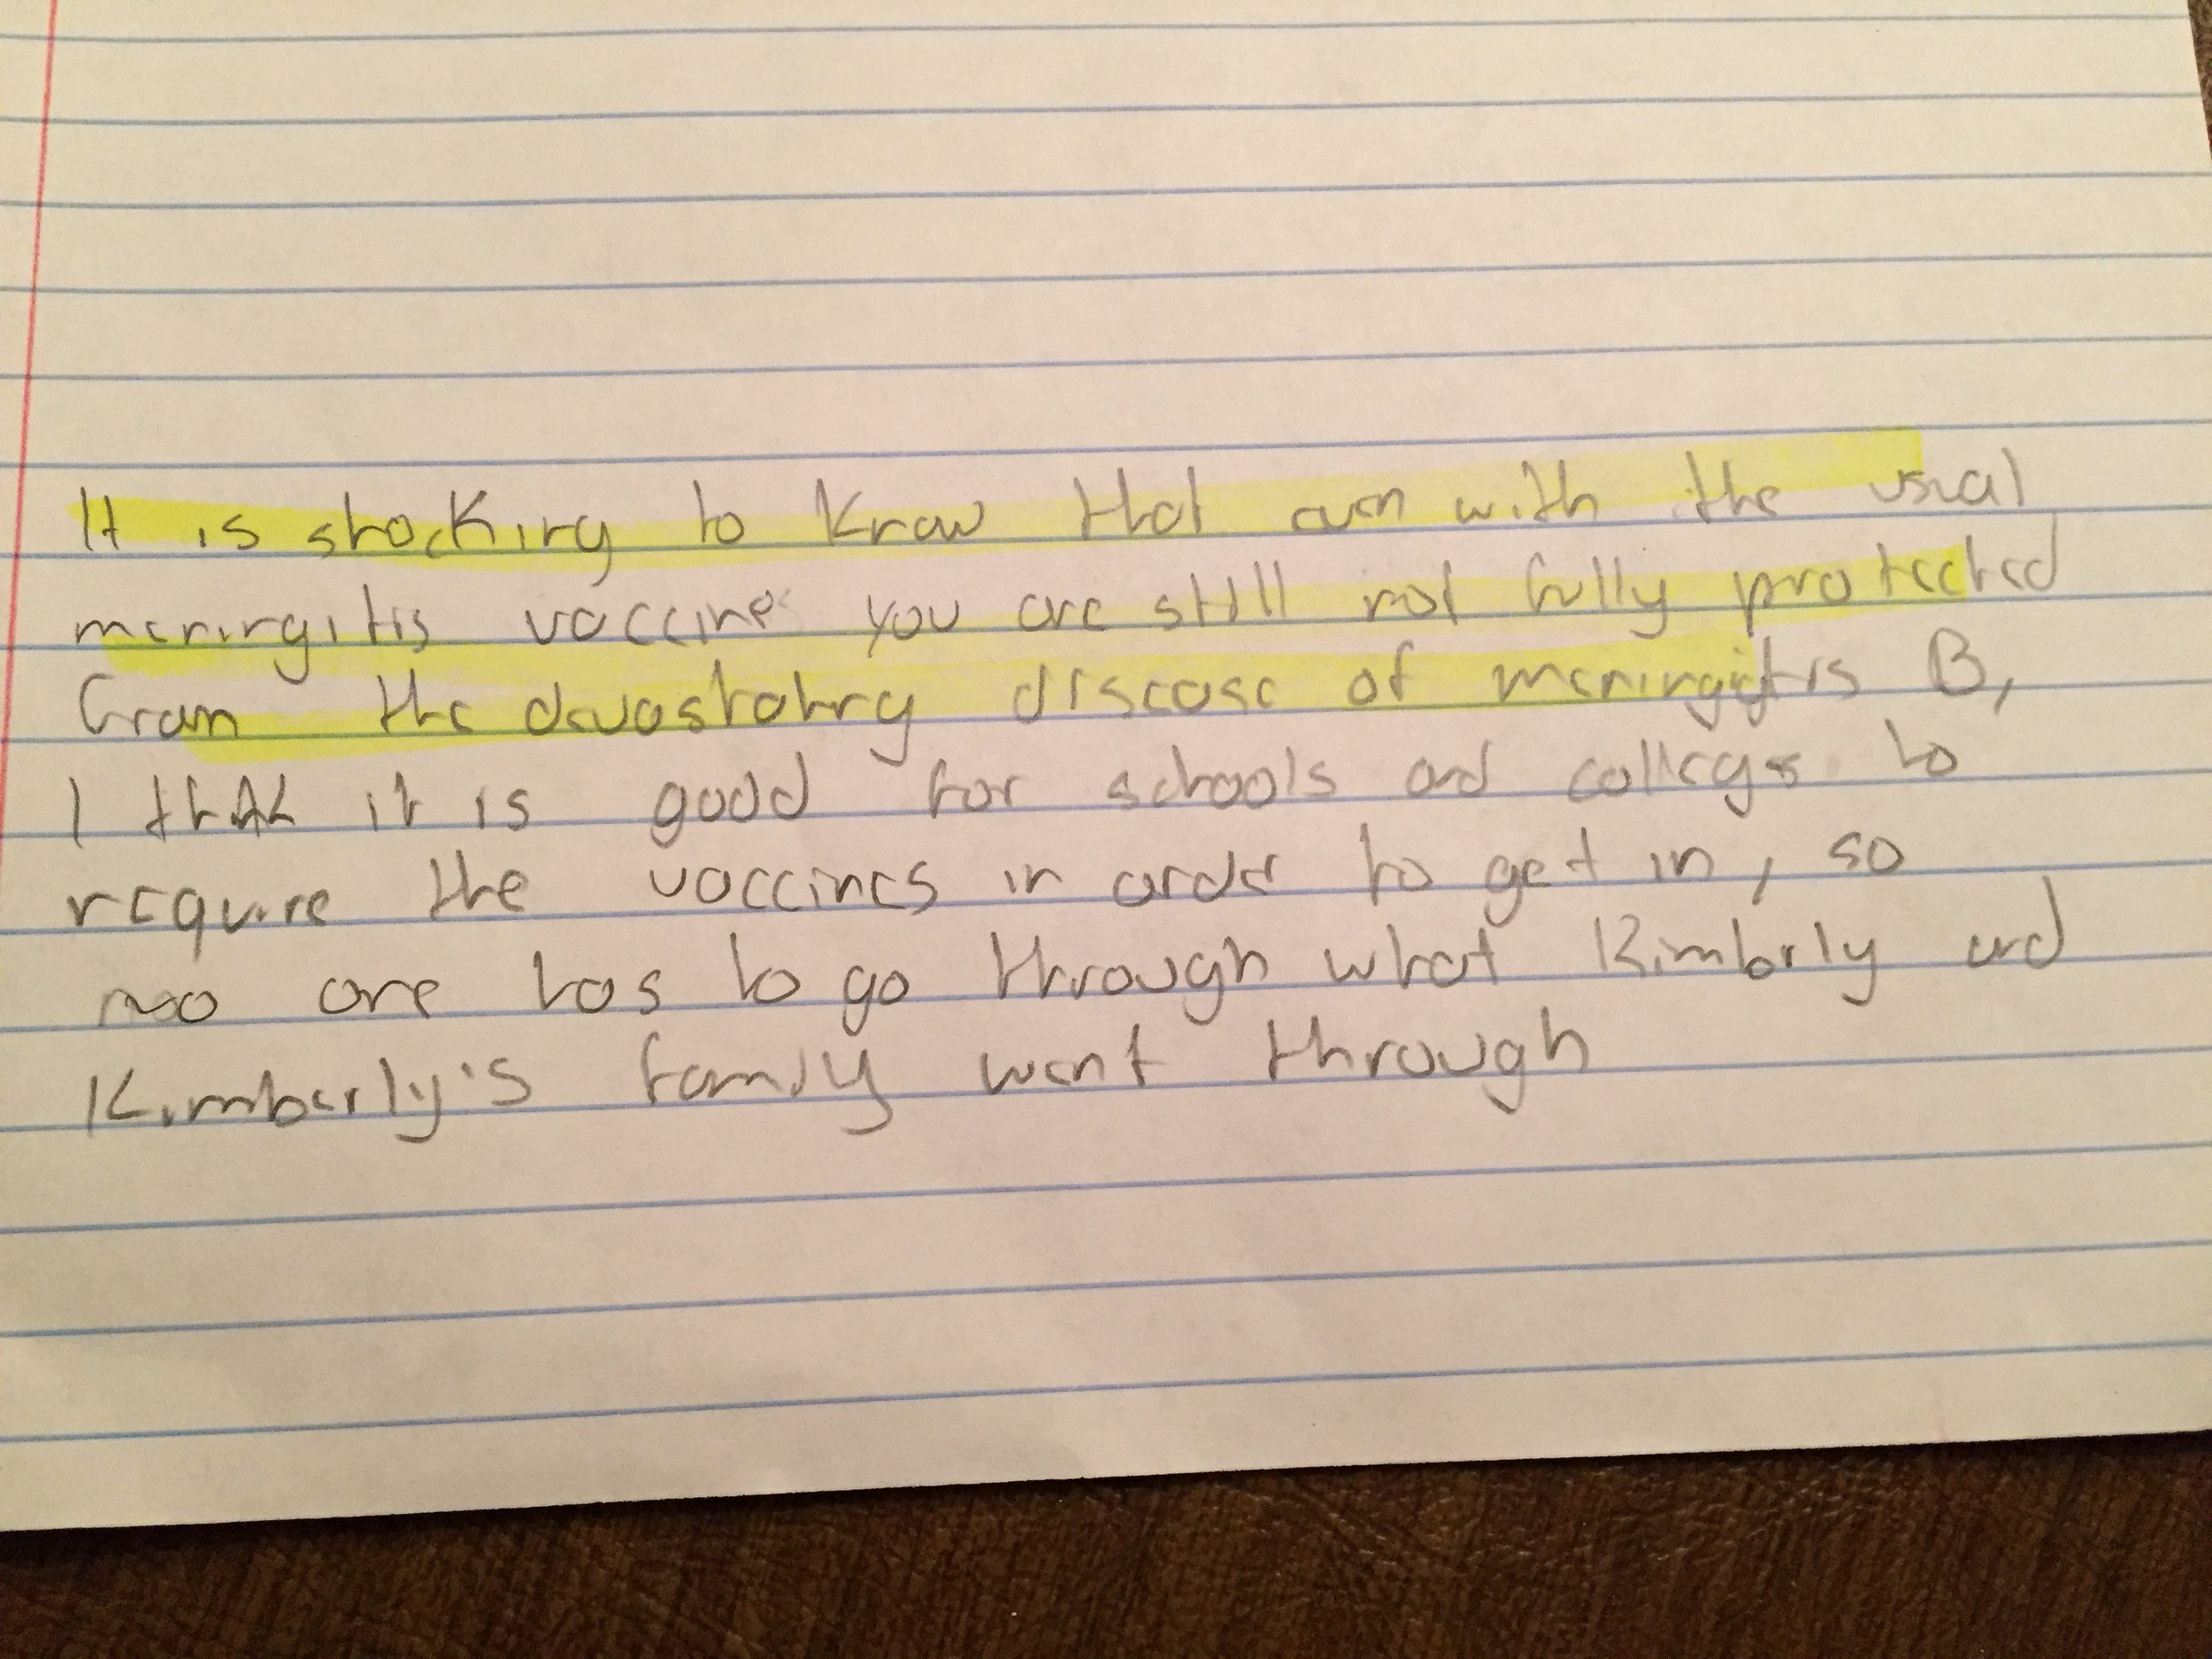 It is shocking to know that even with the usual
meningitis vaccine you are still not fully protected
from the devastating disease of meningitis B,
I think it is good for schools and colleges to
require the vaccines in order to get in, so
no one has to go through what Kimberly and
Kimberly's family went through